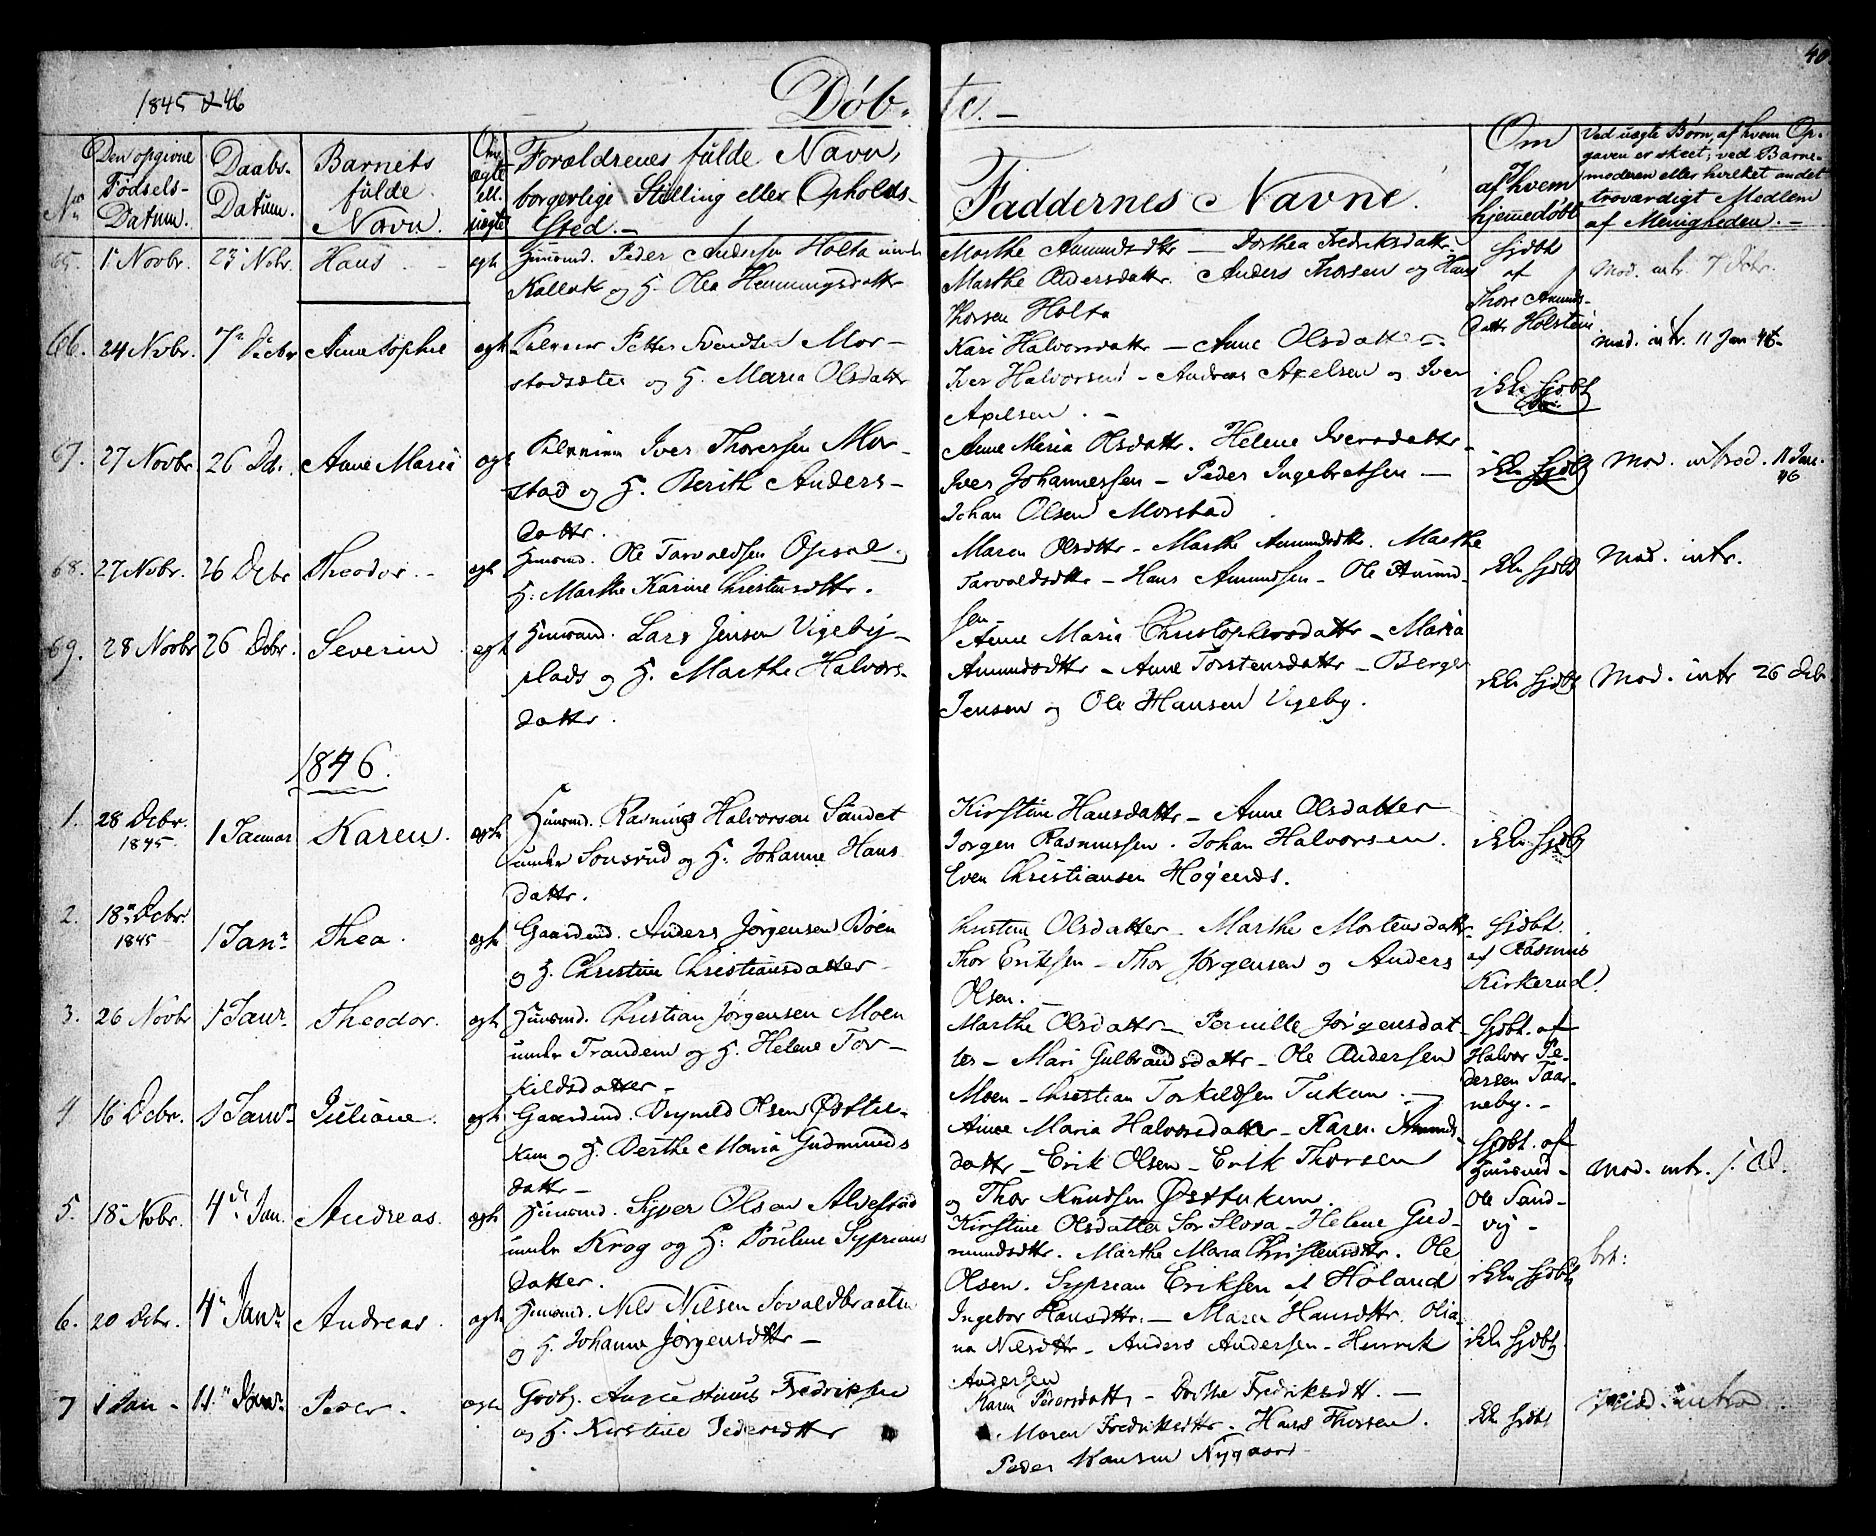 40
1845 & 46
Døb- te.-
No
Den opgivne Fødsels-Datum.
Daabs-Datum.
Barnets fulde Navn.
Om ægte ell. uægte
Forældrenes fulde Navn, borgerlige Stilling eller Opholds-Sted.-
Faddernes Navne.
Om af hvem hjemmedøbt
Ved uægte Børn, af hvem Op-
gaven er skeet; ved Barne-
moderen eller hvilket andet
troværdigt Medlem
af Menigheden.-
65 1 Novbr. 23 Nobr. Hans
Huusmd. Peder Andersen Holta under
Kallerk og H. Olea Hemmingsdatter
Marthe Amundsdtr - Dorthea Fredriksdattr.
Marthe Pedersdatter. Anders Thorsen og Hans
Thorsen Holta
Hjdbt
af
Thore Amunds-
datter Holstein.
Mod. intr. 7 Dcbr.
66. 24 Novbr. 7 Decbr Anne Sophie ægte
Petter Svendsen Mor-
stadsæter og H. Maria Olsdatter
Kari Halvorsdattr - Anne Olsdatter -
Iver Halvorsen - Andreas Axelsen og Iver
Axelsen. -
ikke hjdbt
Mod. intr. 11 Jan 46-
67. 27 Novbr 26 Dcbr. Anne Maria ægte
Iver Thoresen Mor-
stad og H. Berith Anders-
datter.
Anne Maria Olsdattr. Helene Iversdattr -
Iver Johannessen - Peder Ingebretsen -
Johan Olsen Morstad
ikke hjdbt
Mod. introd. 11 Jan. 46
68. 27 Novbr. 26 Dcbr Theodor. - ægte
Huusmd. Ole Tarvaldsen Opsal og
H. Marthe Karine Christensdtr.
Maren Olsdttr - Marthe Amundsdttr. Marthe
Tarvaldsdttr - Hans Amundsen - Ole Amund-
sen -
ikke hjdbt
Mod. intr.
69. 28 Novbr 26 Dcbr. Severin ægte
Huusmd. Lars Jensen Vigeby-
plads og H. Marthe Halvors-
datter.
Anne Maria Christophersdattr - Maria
Amundsdttr - Anne Torstensdattr - Berger
Jensen og Ole Hansen Vigeby.
ikke hjdbt
Mod. intr 26 Dcb.
1846.
1. 28 Dcbr. 1845 1 Januar Karen. ægte
Huusmd. Rasmus Halvorsen Sandet
under Sonsrud og H. Johanne Hans
datter.
Kirstine Hansdattr - Anne Olsdatter
Jørgen Rasmussen. Johan Halvorsen.
Even Christiansen Høgenes.
ikke hjdbt
2. 18 Dcbr. 1845 1 Janr Thea. ægte
Gaardmd. Anders Jørgensen Bøen
og H. Christine Christiansdatter
Christine Olsdatter - Marthe Mortensdattr
Thor Eriksen - Thor Jørgensen og Anders
Olsen. -
Hjdbt.
af Rasmus
Kirkerud.
3. 26 Novbr 1 Janr. Theodor. ægte
Huusmd. Christian Jørgensen Moen
under Trandem og H. Helene Tor-
kildsdatter -
Marthe Olsdattr - Pernille Jørgensdat
ter - Mari Gulbrandsdattr - Ole Andersen
Moen - Christian Torkildsen Tukun. -
Hjdbt. af
Halvor Pe-
dersen Taar-
neby. -
4 16 Dcbr. 1 Janr Juliane. ægte
Gaardmd. Olsen Østtu-
kun og H. Berthe Maria Gudmunds
datter -
Anne Maria Halvorsdatter - Karen Amunds-
datter - Erik Olsen - Erik Thorsen
og Thor Knudsen Østtukun.
Hjdbt. af
Huusmd -
Ole Sand-
vig -
Mod. intr.
5. 18 Nobr. 4 Jan. Andreas. ægte
Huusmd. Syver Olsen Alvesrud
under Krog og H. Pouline Syprians
datter.
Kirstine Olsdatter Sør Slora - Helene Gud-
mundsdttr. Marthe Maria Christensdttr. Ole
Olsen. Syprian Eriksen af Høland
ikke hjdbt
6. 20 Dcbr. 4 Janr Andreas. ægte
Huusmd. Nils Nilsen Sovaldbraaten
og H. Johanne Jørgensdttr -
Ingebor Hansdttr. - Maren Hansdttr. Olia-
na Nilsdttr - Anders Andersen - Henrik
Andersen
ikke hjdbt
7 1 Jan - 11 Janr Peder. ægte
Augustinus Fredriksen
og H. Kirstine Pedersdttr
Karen Pedersdattr - Dorthe Fredriksdtt. -
Maren Fredriksdttr. Hans Thorsen.
Peder Hansen Nygaard
ikke hjdbt
Mod. introd.